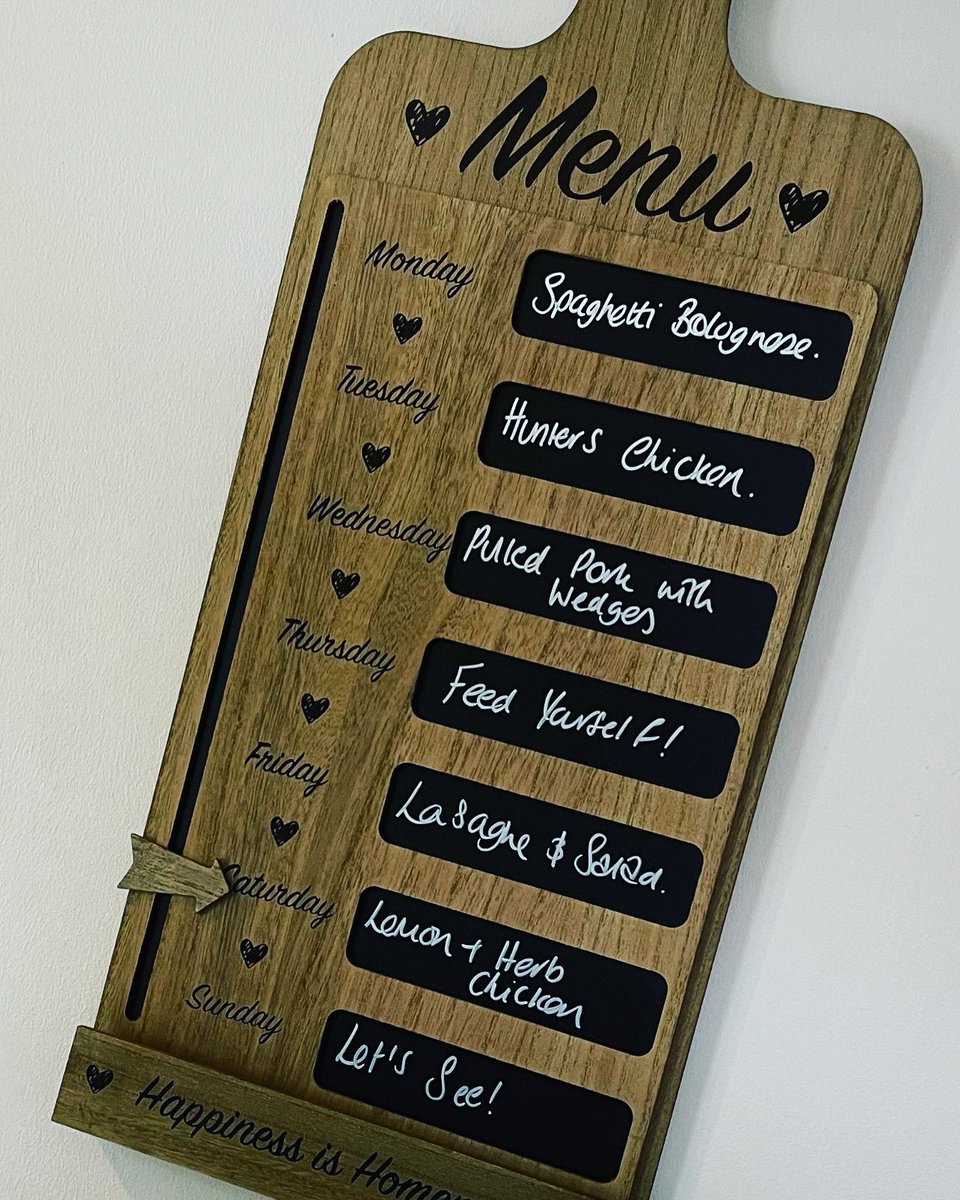 Menu
Monday
Spaghetti Bolognese.
Tuesday
Hunters Chicken.
Wednesday
Pulled Pork with
Wedges
Thursday
Feed Yourself!
Friday
Lasagne & Salad.
Saturday
Lemon + Herb
Chicken
Sunday
Let's See!
Happiness is